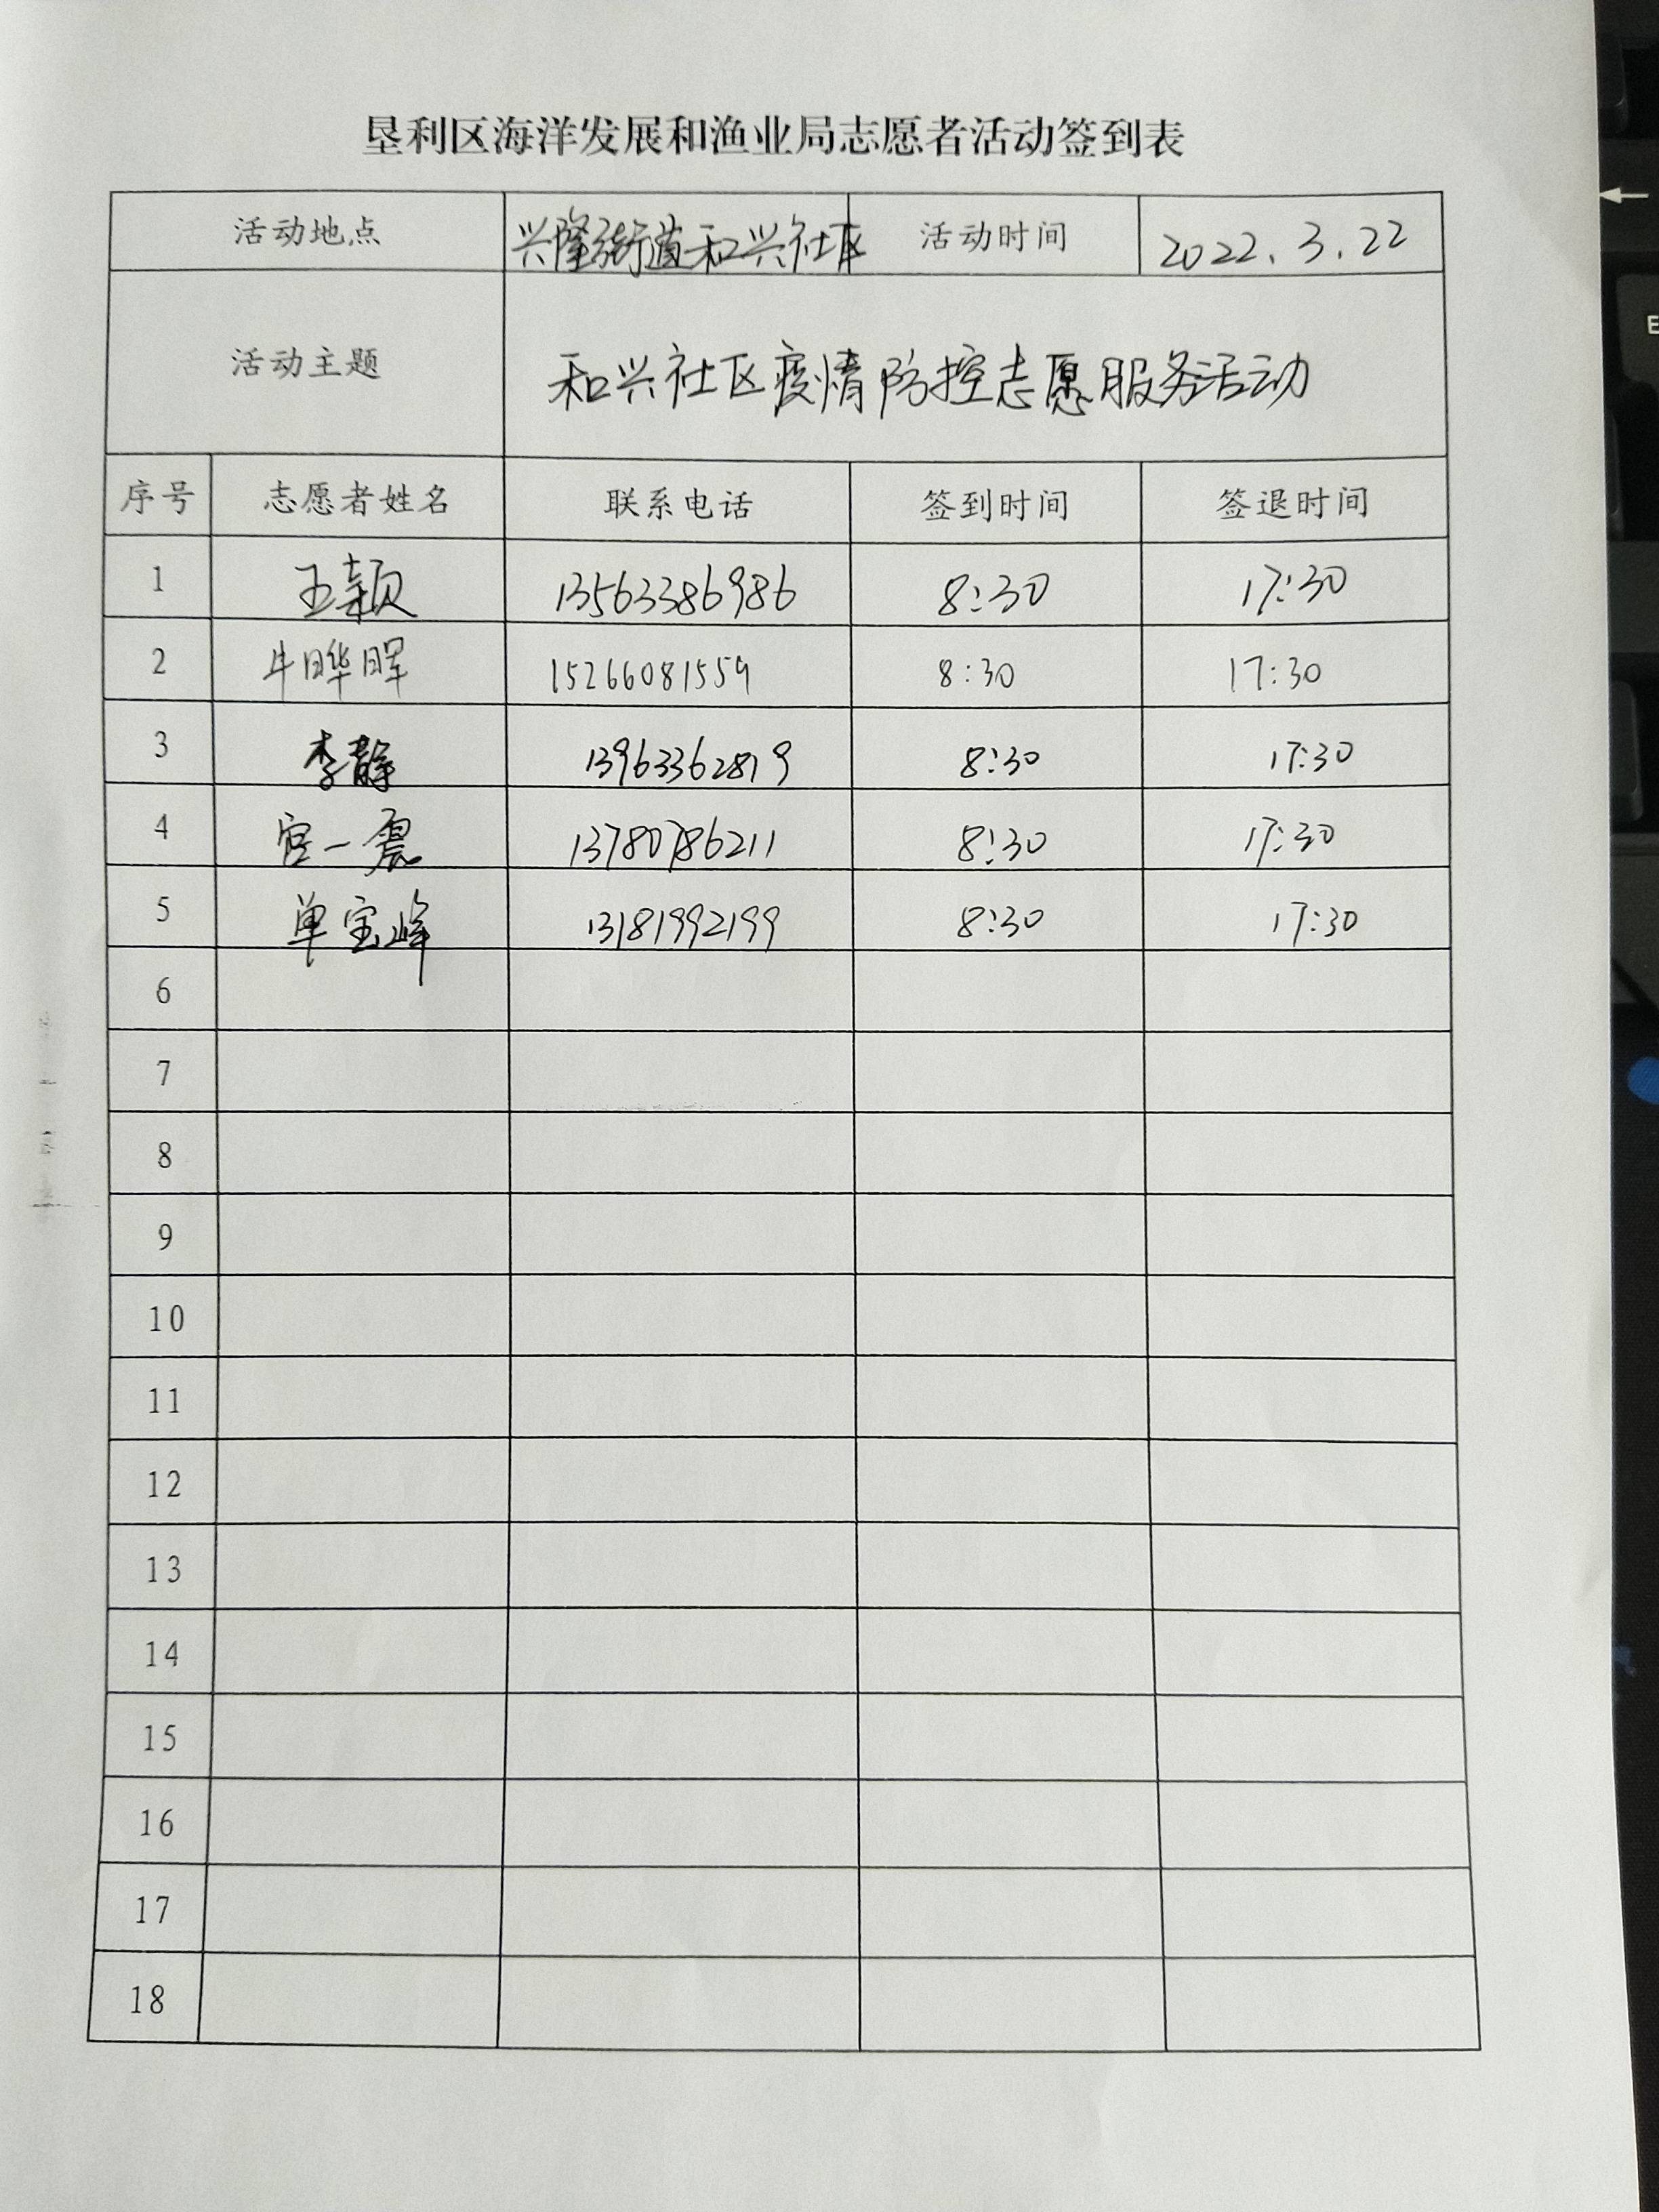 垦利区海洋发展和渔业局志愿者活动签到表
活动地点 兴隆街道和兴社区 活动时间 2022.3.22
活动主题 和兴社区疫情防控志愿服务活动
序号 志愿者姓名 联系电话 签到时间 签退时间
1 王颖 13563386986 8:30 17:30
2 牛晔晖 15266081559 8:30 17:30
3 李静 13963362819 8:30 17:30
4 宫一震 13780786211 8:30 17:30
5 单宝峰 13181992199 8:30 17:30
6
7
8
9
10
11
12
13
14
15
16
17
18